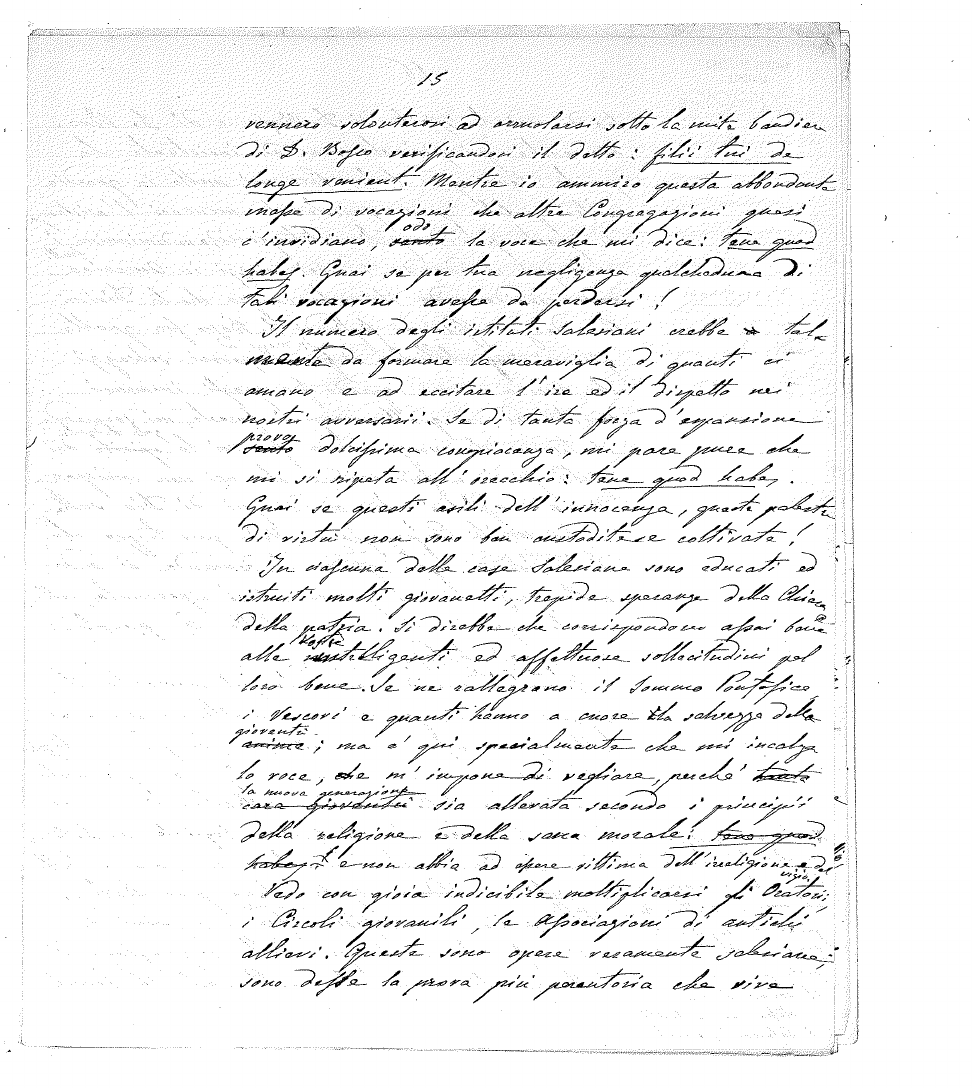 15
vennero volonterosi ad arruolarsi sotto la mite bandiera
di D. Bosco verificandosi il detto: filii tui de
longe venient. Mentre io ammiro questa abbondante
messe di vocazioni che altre Congregazioni quasi
c'invidiano, odo sento la voce che mi dice: tene quod
habes. Guai se per tua negligenza qualcheduna di
tali vocazioni avesse da perdersi!
Il numero degli istituti Salesiani crebbe tal
mente da formare la meraviglia di quanti ci
amano e ad eccitare l'ire ed il dispetto nei
nostri avversarii. Se di tanta forza d'espansione
provo
sento dolcissima compiacenza, mi pare pure che
mi si ripeta all'orecchio: tene quod habes.
Guai se questi asili dell'innocenza, queste palestre
di virtù non sono ben custodite e coltivate!
In ciascuna delle case Salesiane sono educati ed
istruiti molti giovanetti, trepide speranze della Chiesa e
della patria. Si direbbe che corrispondono assai bene
alle vostre intelligenti ed affettuose sollecitudini pel
loro bene. Se ne rallegrano il Sommo Pontefice,
i Vescovi e quanti hanno a cuore la salvezza della
gioventù
anime; ma è qui specialmente che mi incalza
la voce, che m'impone di vegliare, perchè tanta
la nuova generazione
cara gioventù sia allevata secondo i principii
della religione e della sana morale: tene quod
habes e non abbia ad essere vittima dell'irreligione e del
vizio.
Vedo con gioia indicibile moltiplicarsi gli Oratorii,
i Circoli giovanili, le Associazioni di antichi
allievi. Queste sono opere veramente salesiane;
sono desse la prova più perentoria che vive